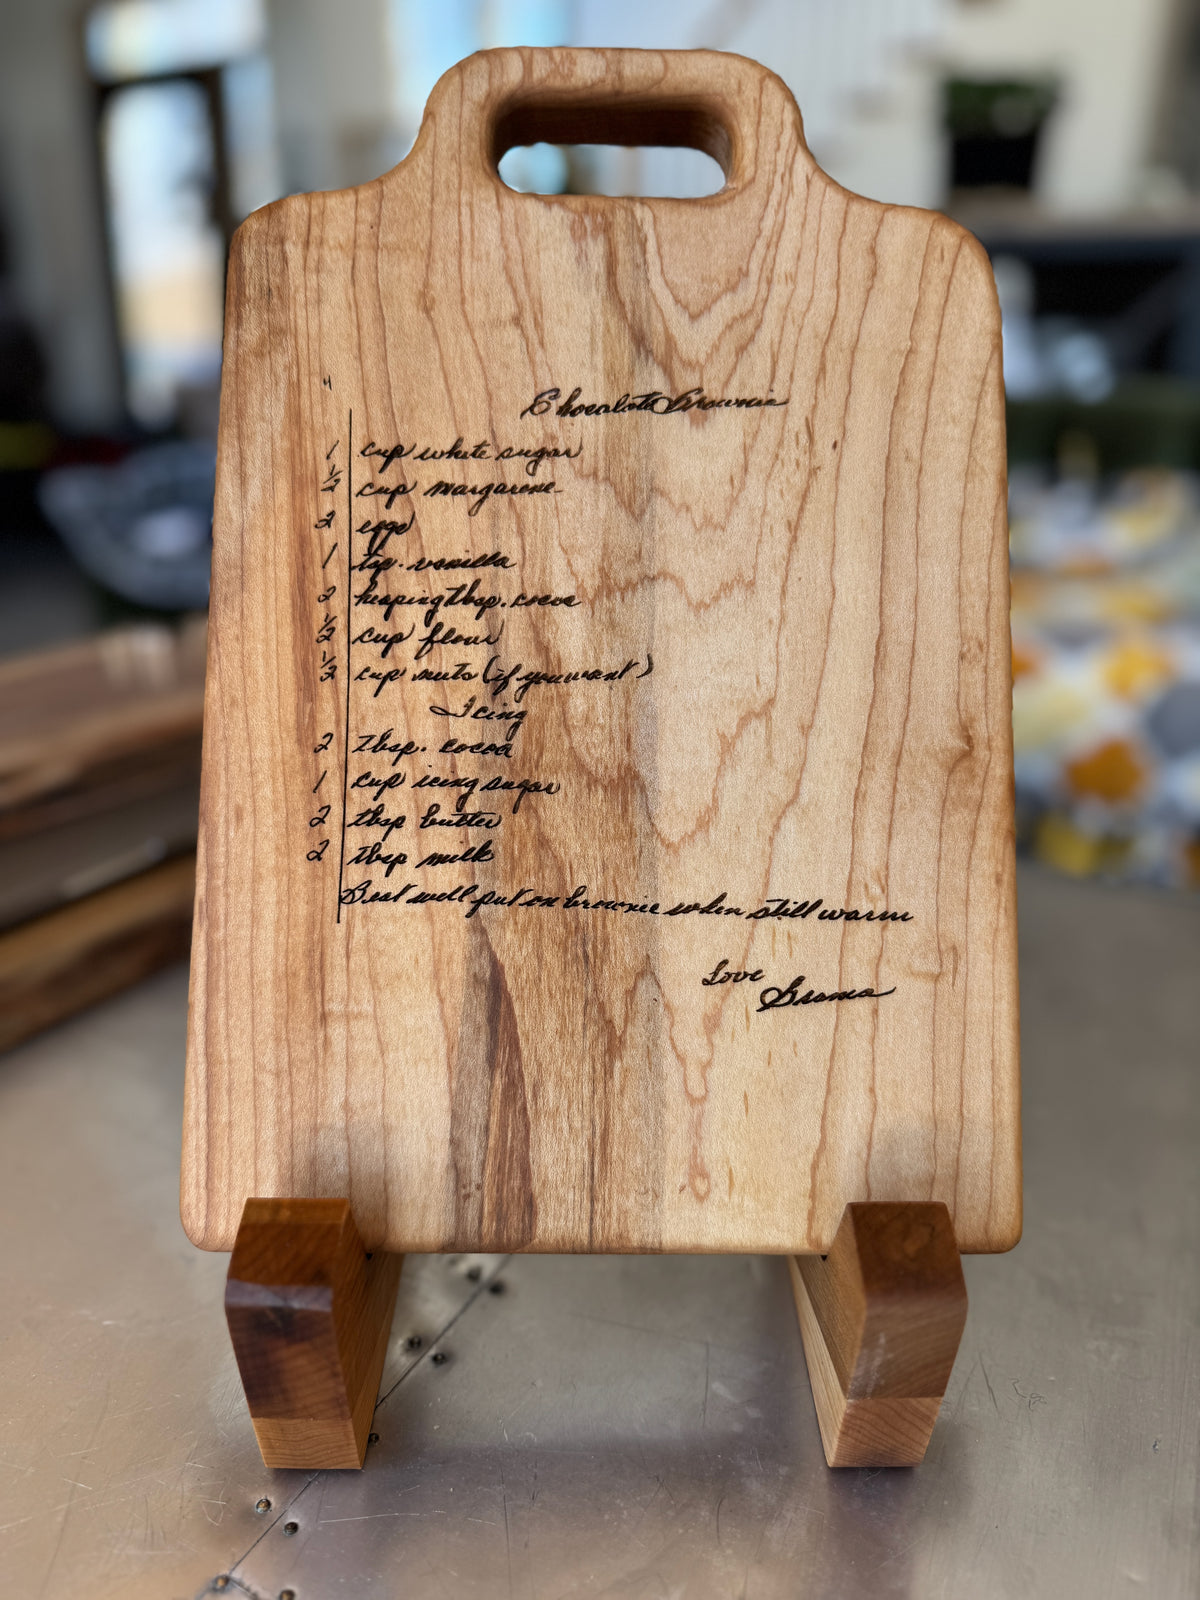 Chocolate Brownie
1 cup white sugar
1/2 cup margarene
2 eggs
1 tsp. vanilla
2 heaping tbsp. cocoa
1/2 cup flour
1/2 cup nuts (if you want)
Icing
2 tbsp. cocoa
1 cup icing sugar
2 tbsp butter
2 tbsp milk
Beat well put on brownie when still warm
Love
Grama